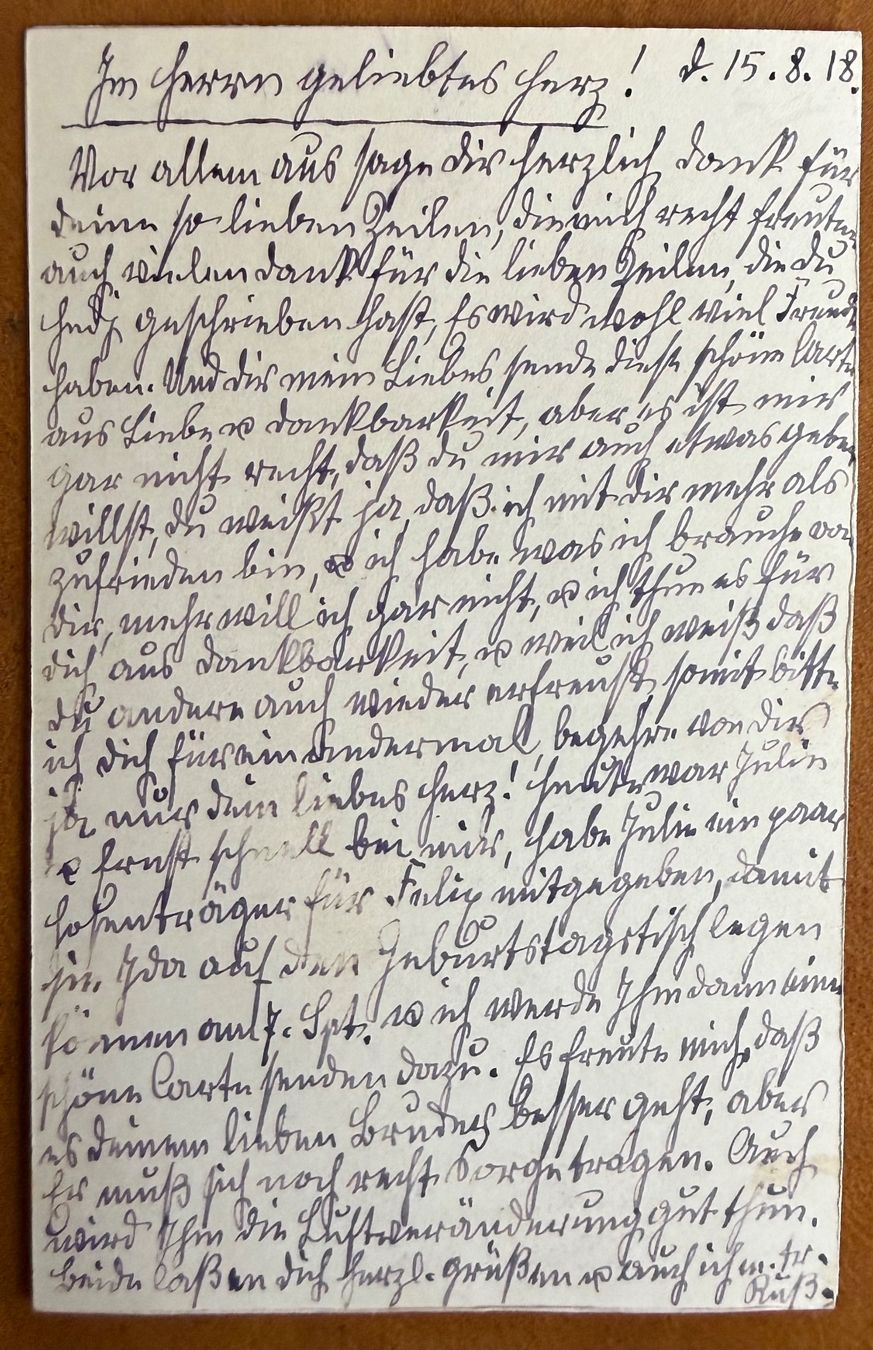 Im Herrn geliebtes Herz! d. 15.8.18.
Vor allem aus sage dir herzlich Dank für
deine so lieben Zeilen, die mich recht freuten
auch vielen Dank für die lieben Zeilen, die du
Hedj geschrieben hast, Es wird wohl viel Freude
haben. Und dir mein Liebes, sende diese schöne Carte
aus Liebe u Dankbarkeit, aber es ist mir
gar nicht recht, daß du mir auch etwas geben
willst, du weißt ja, daß ich mit dir mehr als
zufrieden bin, u ich habe was ich brauche von
dir, mehr will ich gar nicht, u ich thue es für
dich aus Dankbarkeit, u weil ich weiß daß
du andere auch wieder erfreust, somit bitte
ich dich für ein andermal, begehre von dir
ja nur dein liebes Herz! Heute war Julie
u Ernst schnell bei mir, habe Julie ein paar
Hosenträger für Felix mitgegeben, damit
sie Ida auf den Geburtstagstisch legen
können am 7. Spt. u ich werde Ihm dann eine
schöne Carte senden dazu. Es freute mich, daß
es deinem lieben Bruder besser geht, aber
Er muß sich noch recht Sorge tragen. Auch
wird Ihm die Luftveränderung gut thun.
Beide laßen dich herzl. grüßen u auch ich m. tr.
Kuß.